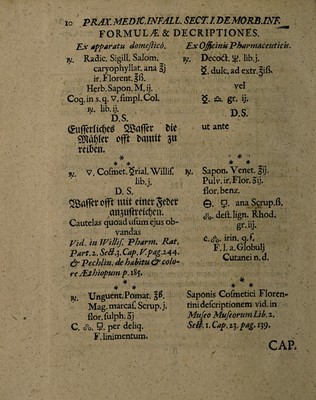 10 PRAX. MEDIC. INFALL. SECT. I. DE MORB. INF.
FORMULÆ & DECRIPTIONES.
Ex apparatu domestico.
℞. Radic. Sigill. Salom.
caryophyllat. ana ℥j
ir. Florent. ℥ß.
Herb. Sapon. M. ij.
Coq. in s. q. ▽. simpl. Col.
℞. lib. ij.
D. S.
Eusserliches Wasser die
Mähler offt damit zu
reiben.
* * *
℞. ▽. Cosmet. ☿rial. Willis.
lib. j.
D. S.
Wasser offt mit einer Feder
anzustreichen.
Cautelas quoad usum ejus ob-
vandas
Vid. in Willis. Pharm. Rat.
Part. 2. Sect. 3. Cap. V. pag. 244.
& Pechlin. de habitu & colo-
re Æthiopum p. 185.
* * *
℞. Unguent. Pomat. ℥ß.
Mag. marcas. Scrup. j.
flor. sulph. ℈j
per deliq.
F. linimentum.
Ex Officinis Pharmaceuticis.
℞. Decoct. lib. j.
☿. dulc. ad extr. ℥iß.
vel
☿. gr. ij.
D. S.
ut ante
* * *
℞. Sapon. Venet. ℥ij.
Pulv. ir. Flor. ℥ij.
flor. benz.
ana Scrup. ß,
dest. lign. Rhod.
gr. iij.
c. irin. q. s.
F. l. a. Globulj
Cutanei n. d.
* * *
Saponis Cosmetici Floren-
tini descriptionem vid. in
Museo Museorum Lib. 2.
Sect. 1. Cap. 23. pag. 139.
CAP.